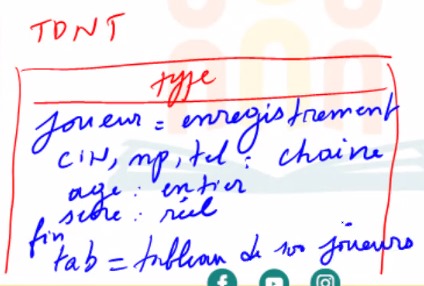 TDNT
type
joueur = enregistrement
CIN, np, tel : chaine
age : entier
score : réel
fin
tab = tableau de 100 joueurs